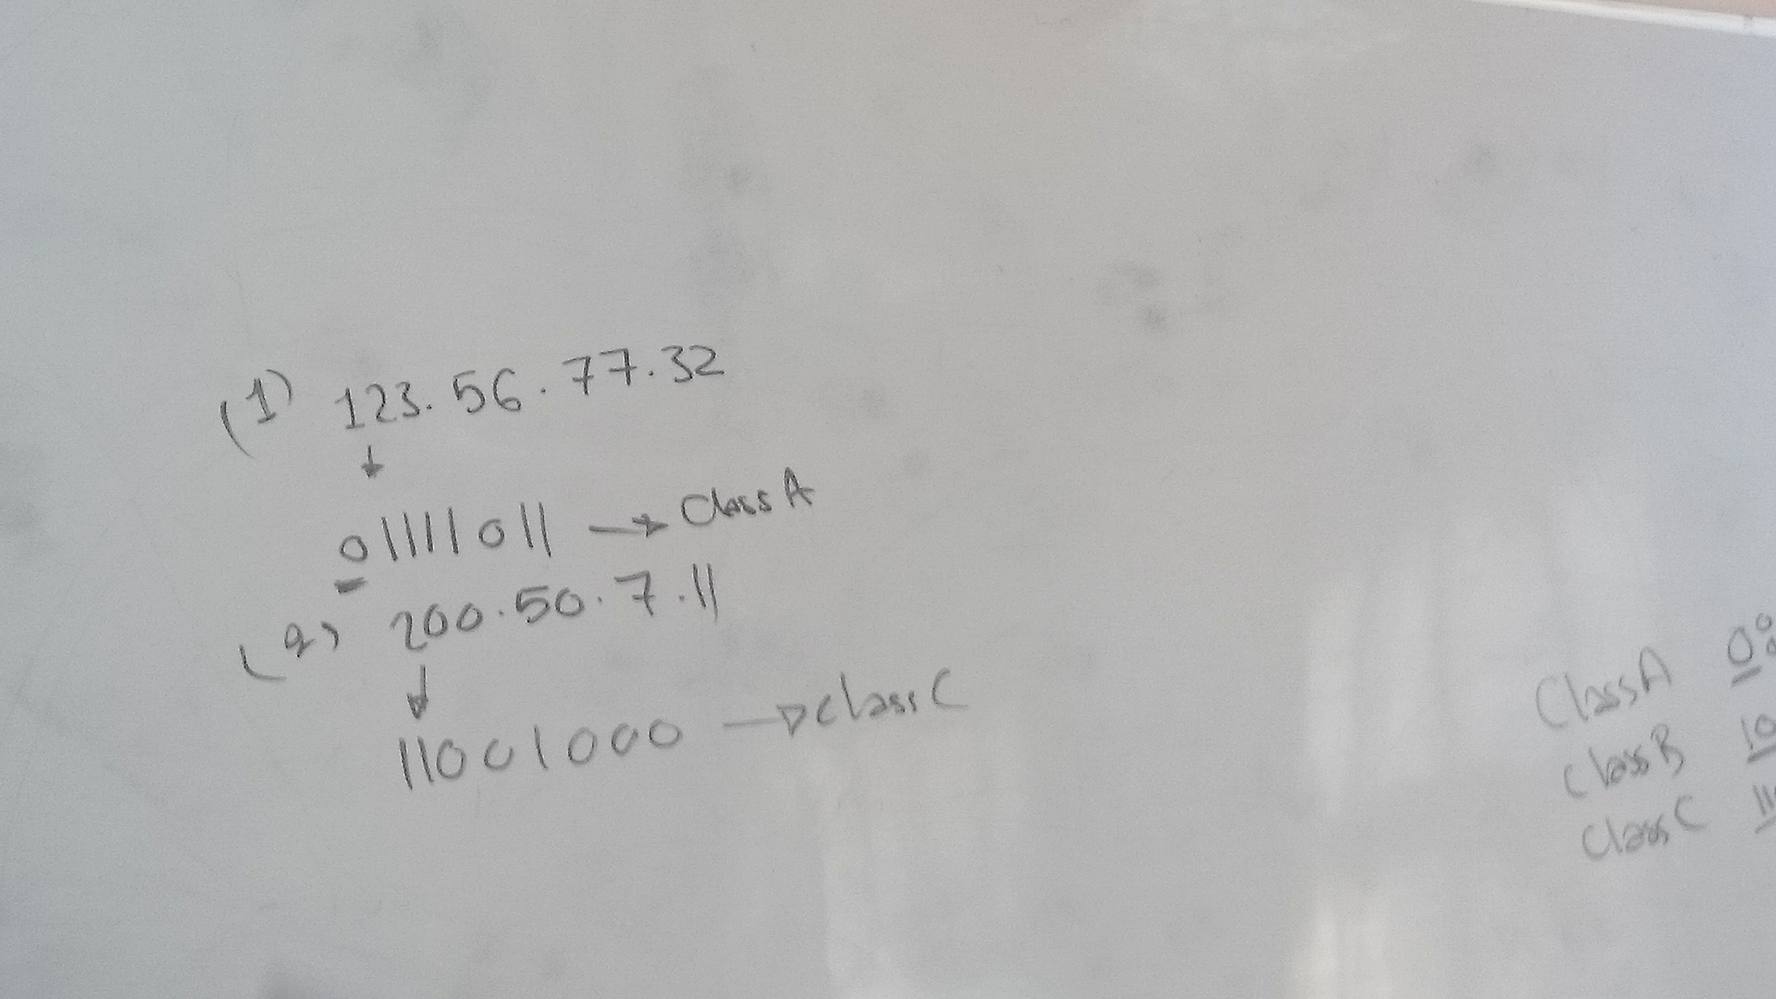 (1) 123.56.77.32
01111011 → Class A
(2) 200.50.7.11
11001000 → Class C
Class A 0
Class B 10
Class C 11